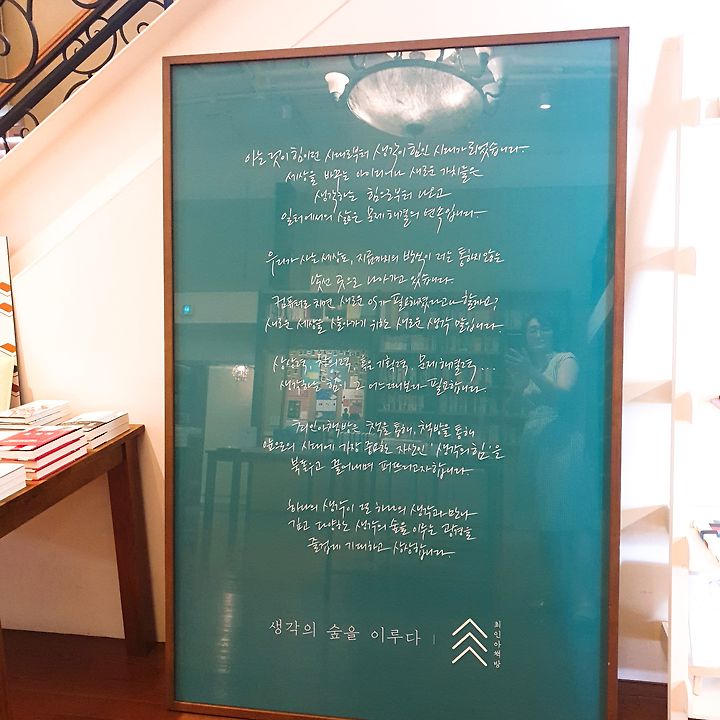 아는 것이 힘이던 시대로부터 생각이 힘인 시대가 되었습니다.
세상을 바꾸는 아이디어나 새로운 가치들은
생각하는 힘으로부터 나오고
일터에서의 삶은 문제 해결의 연속입니다.
우리가 사는 세상도, 지금까지의 방식이 더는 통하지 않는
낯선 곳으로 나아가고 있습니다.
컴퓨터로 치면 새로운 OS가 필요해졌다고나 할까요?
새로운 세상을 살아가기 위한 새로운 생각 말입니다.
상상력, 창의력, 혹은 기획력, 문제 해결력...
생각하는 힘이 그 어느때보다 필요합니다.
최인아책방은 책을 통해, 책방을 통해
앞으로의 시대에 가장 중요한 자산인 '생각의 힘'을
북돋우고 끌어내며 퍼뜨리고자합니다.
하나의 생각이 또 하나의 생각과 만나
깊고 다양한 생각의 숲을 이루는 광경을
즐겁게 기대하고 상상합니다.
생각의 숲을 이루다 |
최인아책방